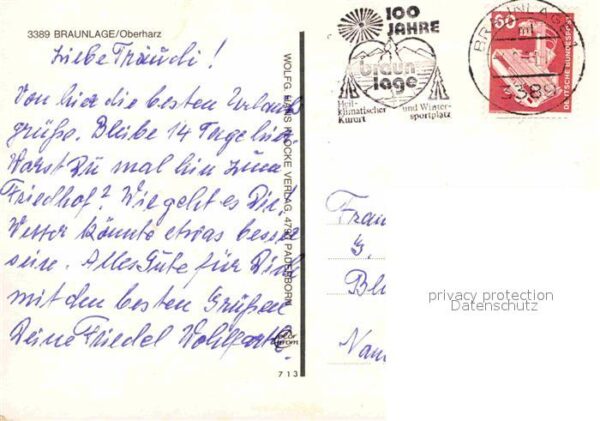 3389 BRAUNLAGE/Oberharz
Liebe Träudi!
Von hier die besten Urlaubs
grüße. Bleibe 14 Tage hier.
Warst Du mal hin zum
Friedhof? Wie geht es Dir?
Wetter könnte etwas besser
sein. Alles Gute für Dich
mit den besten Grüßen
Deine Friedel
WOLFG. HANS KLOCKE VERLAG, 4790 PADERBORN
713
100
JAHRE
braun
lage
Heil-
klimatischer und Winter-
Kurort sportplatz
60
DEUTSCHE BUNDESPOST
BRAUNLAGE 1
3389
Frau
G.
Bl
Nam
privacy protection
Datenschutz